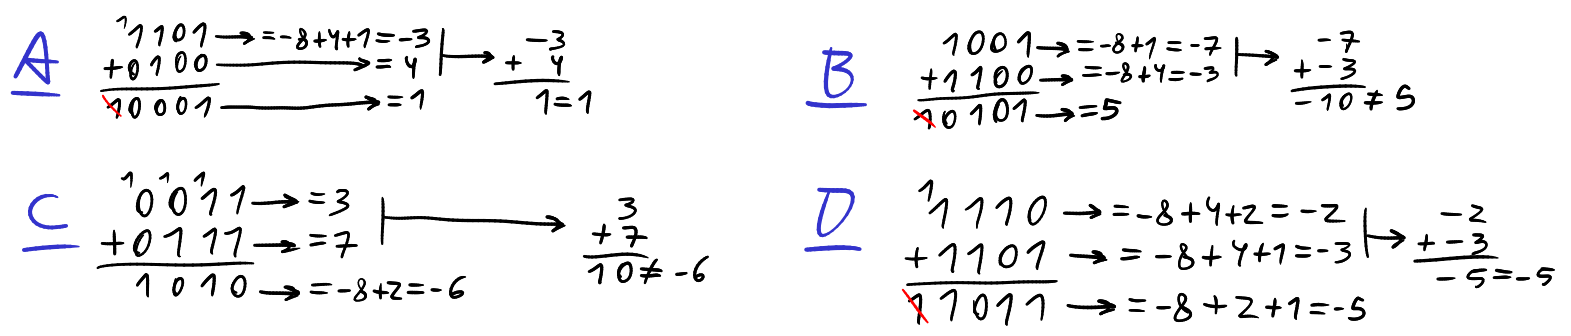 A
1
1101 → =-8+4+1=-3
+0100 → =4
10001 → =1
-3
+ 4
1=1
B
1001 → =-8+1=-7
+1100 → =-8+4=-3
10101 → =5
-7
+-3
-10≠5
C
1 1 1
0011 → =3
+0111 → =7
1010 → =-8+2=-6
3
+7
10≠-6
D
1
1110 → =-8+4+2=-2
+1101 → =-8+4+1=-3
11011 → =-8+2+1=-5
-2
+-3
-5=-5